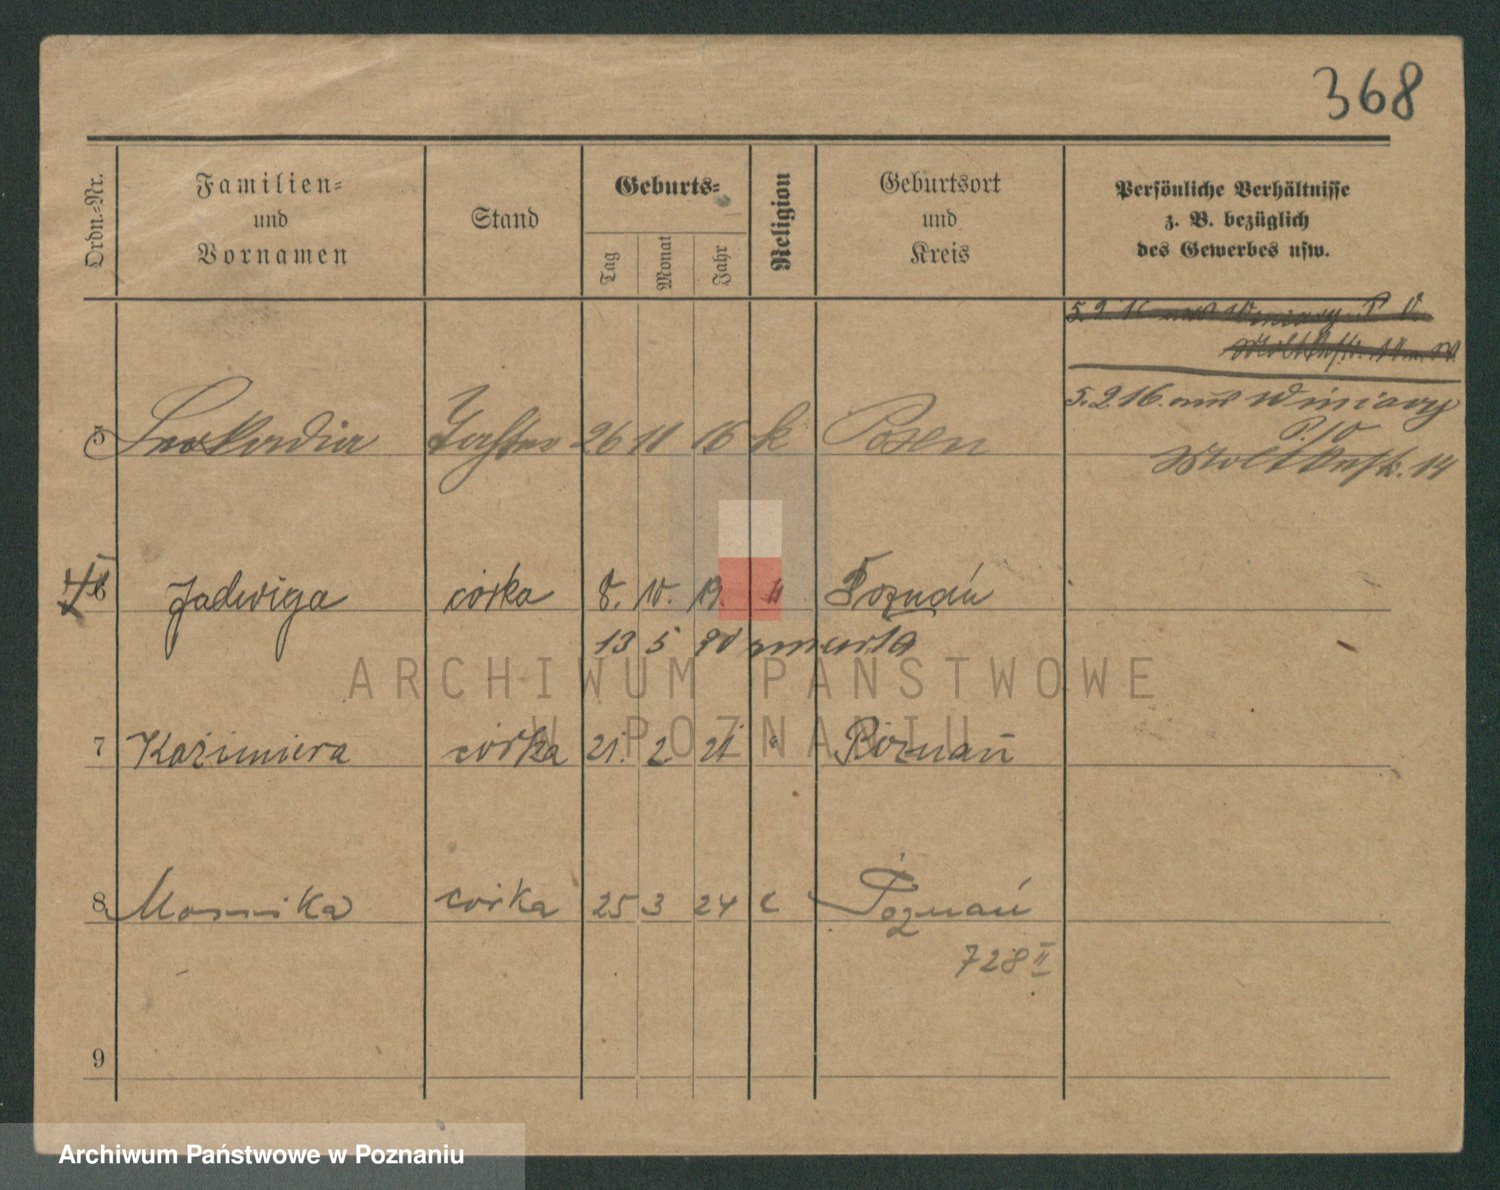 368
Ordn.-Nr.
Familien-
und
Vornamen
Stand
Geburts-
Tag
Monat
Jahr
Religion
Geburtsort
und
Kreis
Persönliche Verhältnisse
z. B. bezüglich
des Gewerbes usw.
5.2.16. aus Winiary
5 Leokardia Tochter 26 11 15 k Posen
Moltkestr. 14
6 Jadwiga córka 8. 10. 19. k Poznań
13 5 20 zmarła
ARCHIWUM PAŃSTWOWE
W POZNANIU
7 Kazimiera córka 21. 2. 21 " Poznań
8 córka 25 3 24 Poznań
728 II
9
Archiwum Państwowe w Poznaniu